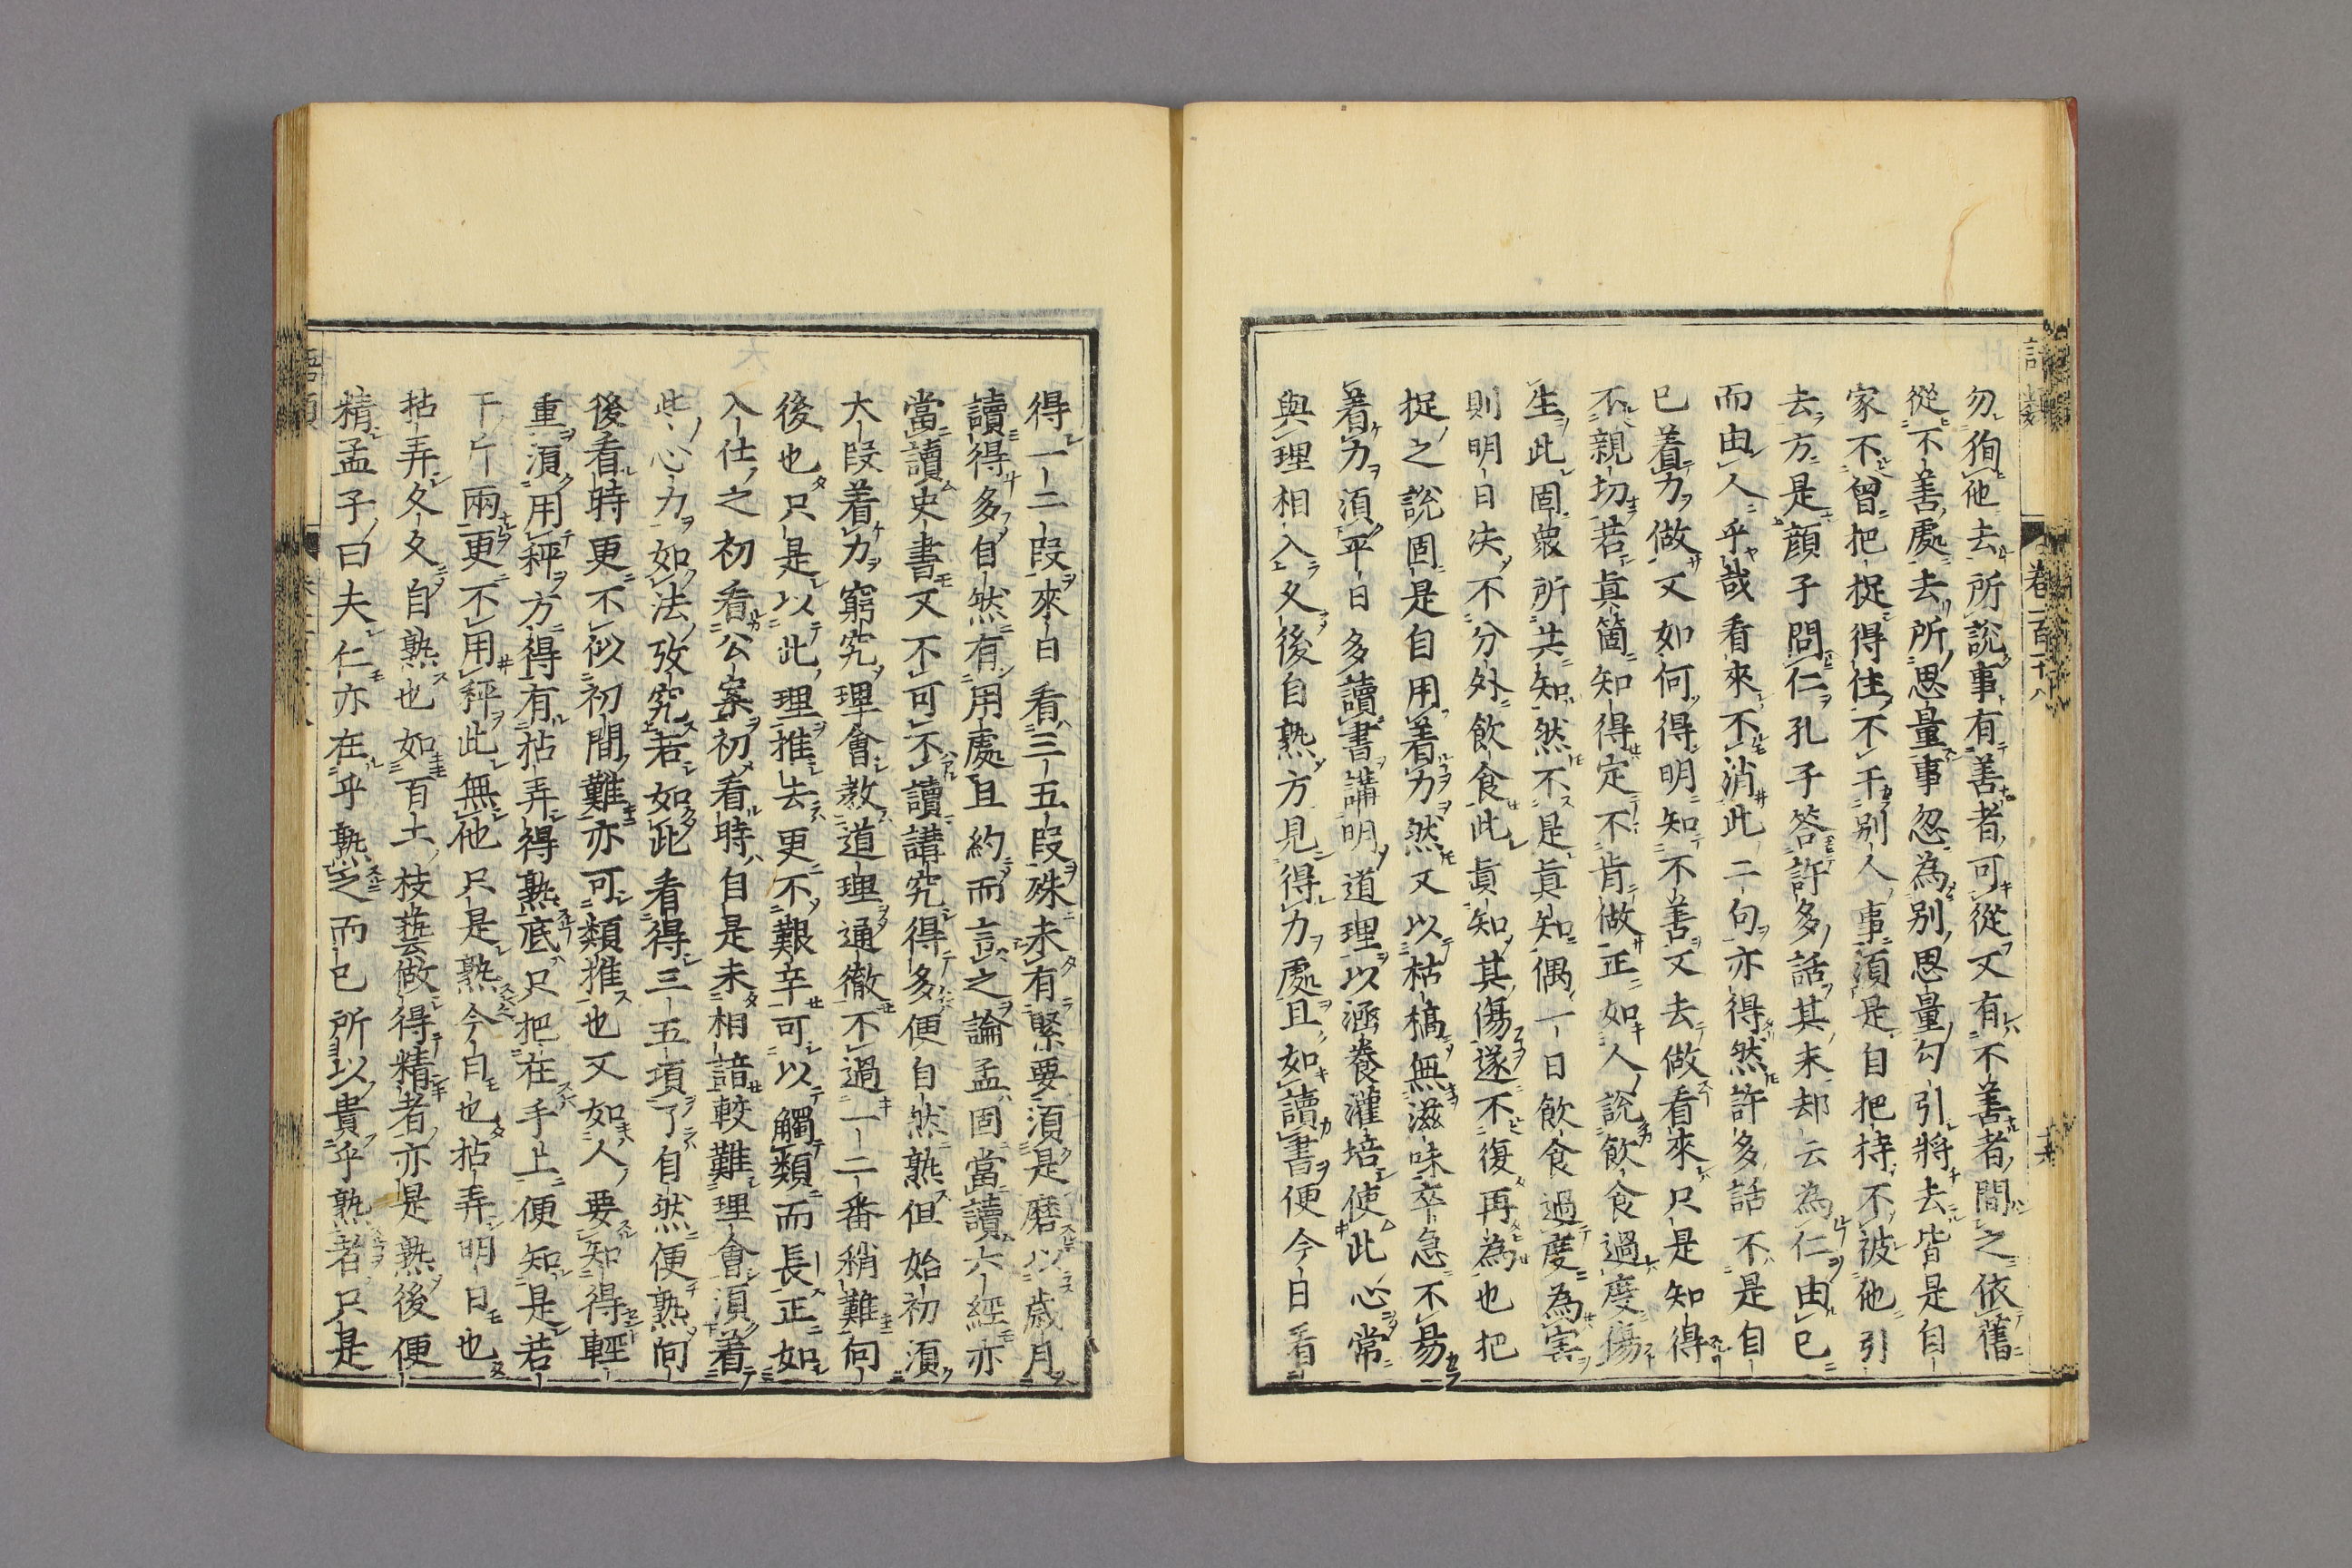 勿徇他去所說事有善者可從又有不善者間之依舊
從不善處去所思量事忽為別思量勾引將去皆是自
家不曾把捉得住不干別人事須是自把持不被他引
去方是顔子問仁孔子答許多話其末却云為仁由己
而由人乎哉看來不消此二句亦得然許多話不是自
己着力做又如何得明知不善又去做看來只是知得
不親切若真箇知得定不肯做正如人說飲食過度傷
生此固衆所共知然不是真知偶一日飲食過度為害
則明日決不分外飲食此真知其傷遂不復再為也把
捉之說固是自用着力然又以枯槁無滋味卒急不易
着力須平日多讀書講明道理以涵養灌培使此心常
與理相入久後自熟方見得力處且如讀書便今日看
得一二段來日看三五段殊未有緊要須是磨以歲月
讀得多自然有用處且約而言之論孟固當讀六經亦
當讀史書又不可不讀講究得多便自然熟但始初須
大段着力窮究理會教道理通徹不過一二番稍難向
後也只是以此理推去更不艱辛可以觸類而長正如
入仕之初看公案初看時自是未相諳較難理會須着
些心力如法攷究若如此看得三五項了自然便熟向
後看時更不似初間難亦可類推也又如人要知得輕
重須用秤方得有拈弄得熟底只把在手上便知是若
干斤兩更不用秤此無他只是熟今日也拈弄明日也
拈弄久久自熟也如百工技藝做得精者亦是熟後便
精孟子曰夫仁亦在乎熟之而已所以貴乎熟者只是
卷一百十八